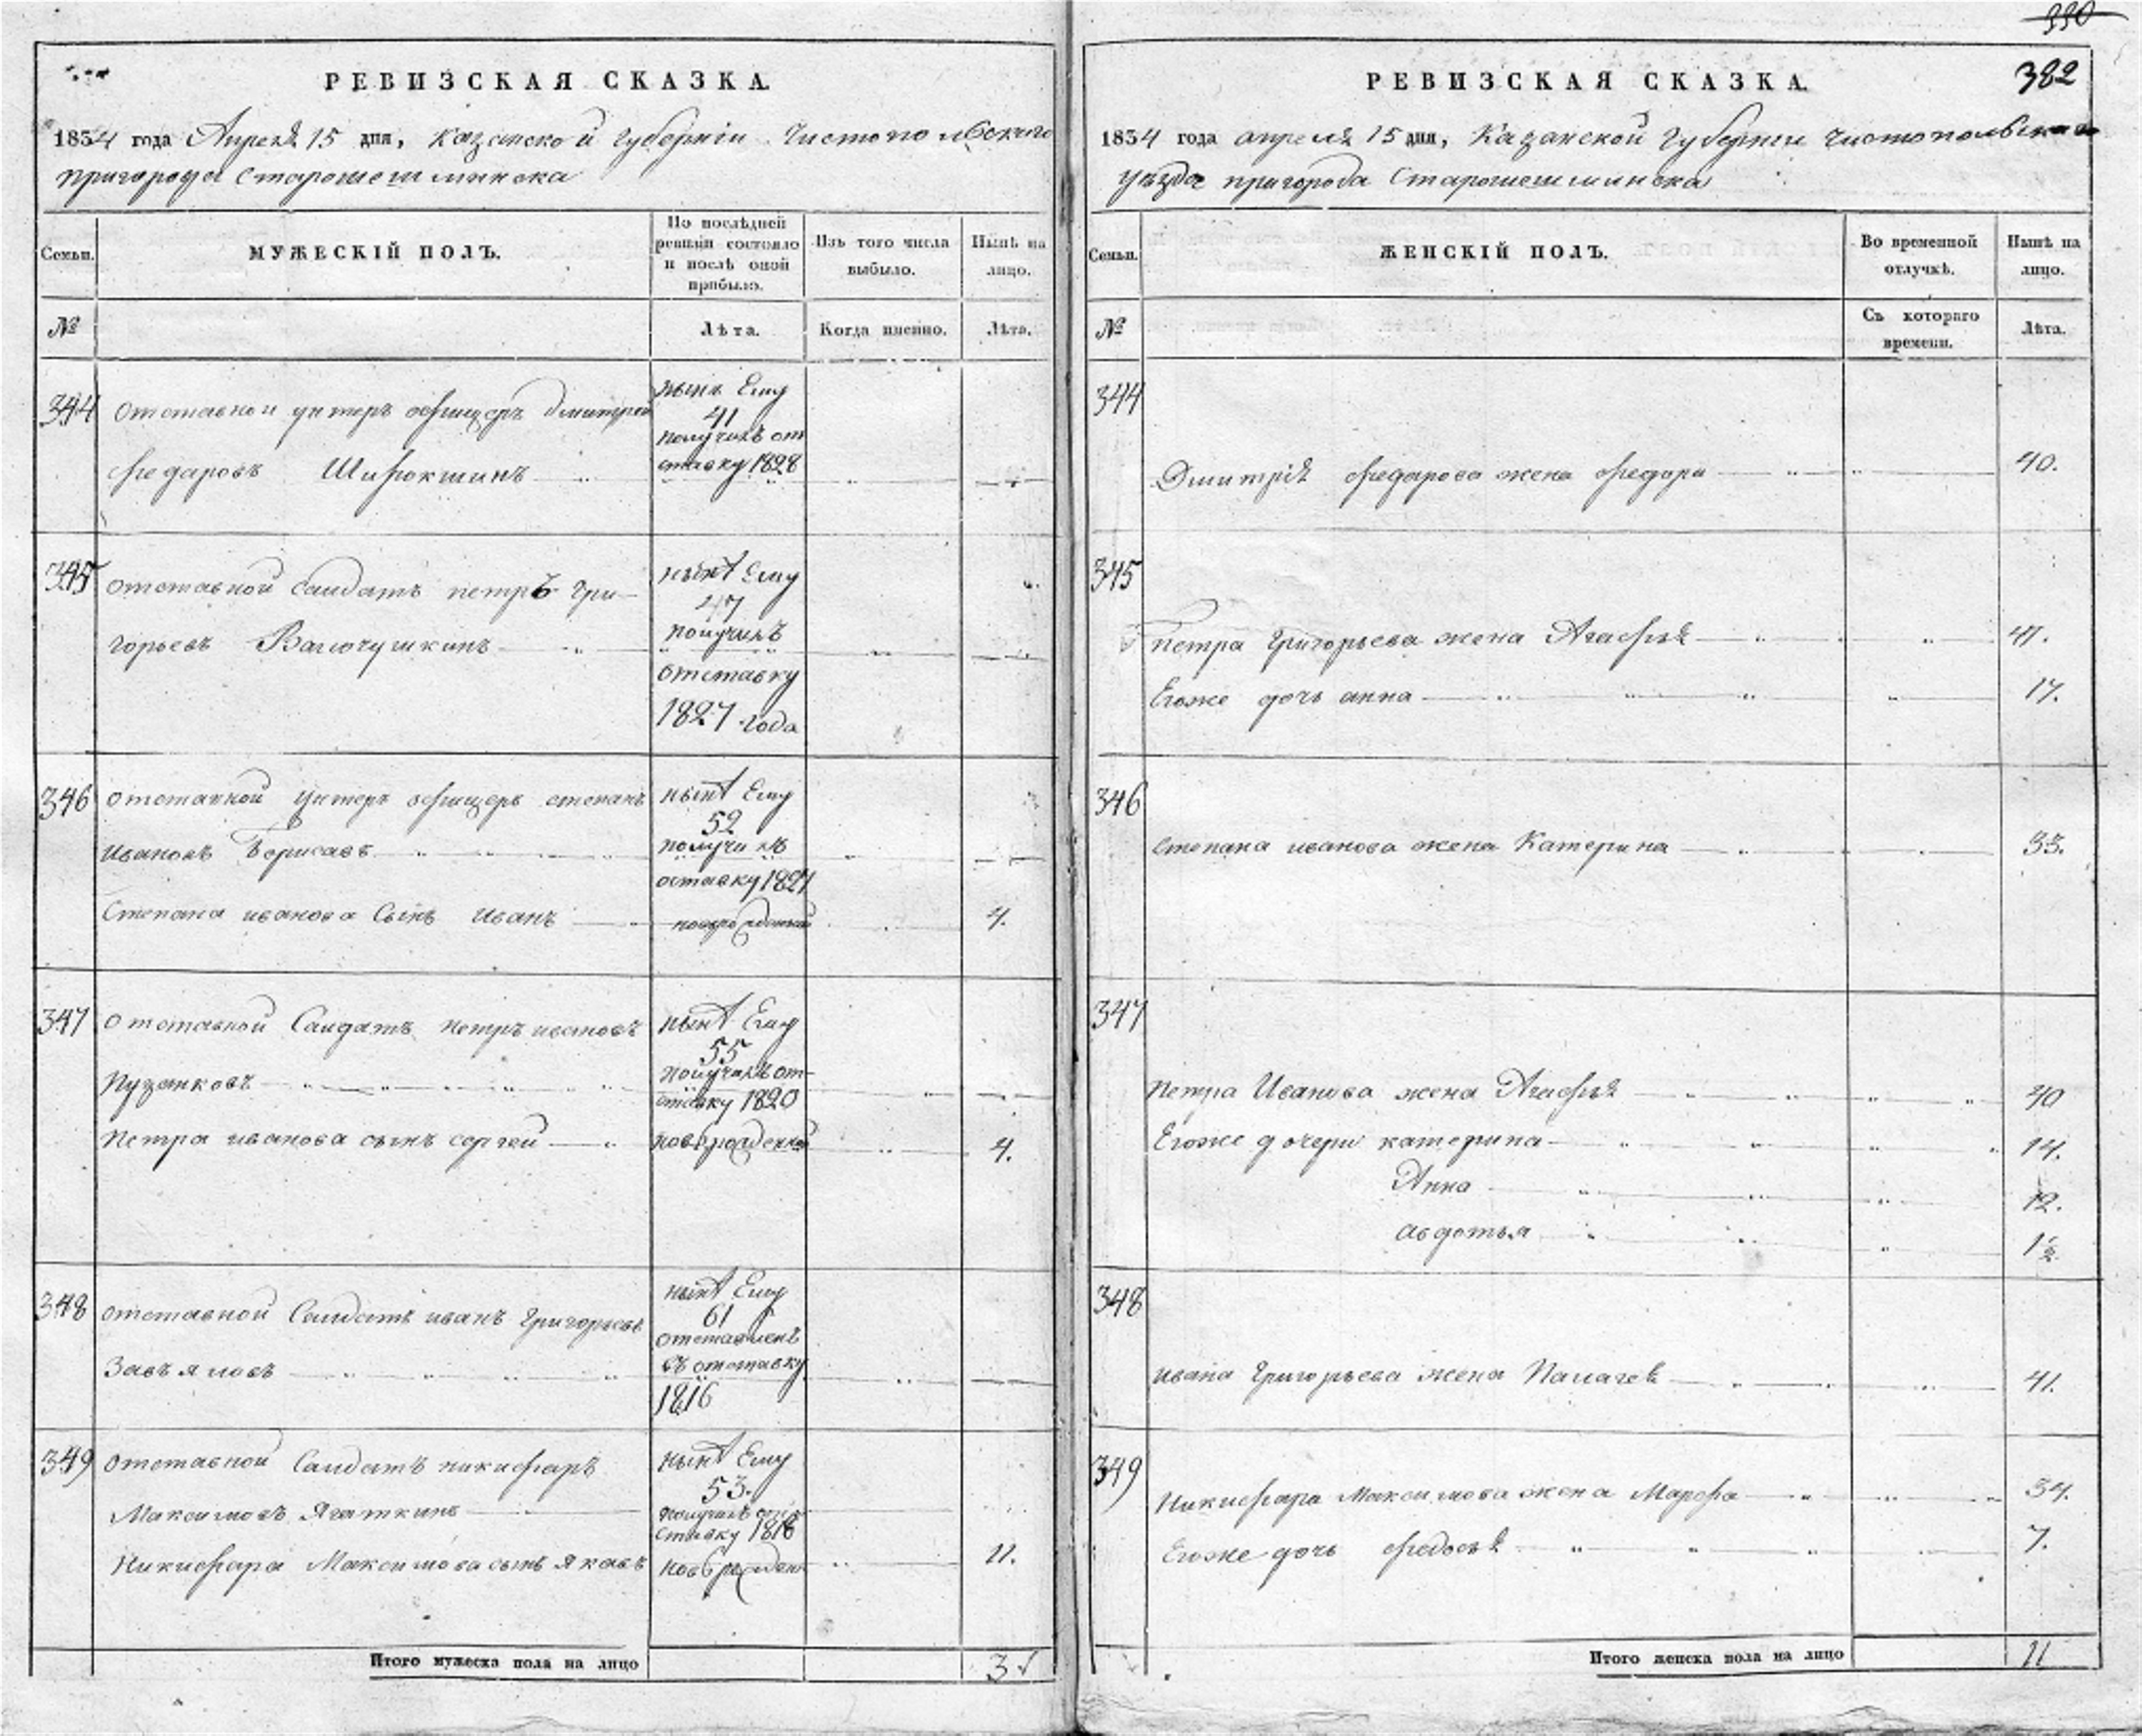 330
РЕВИЗСКАЯ СКАЗКА.
1834 года Апреля 15 дня, Казанской губернии Чистопольскаго
пригорода Старошешминска
Семьи.
МУЖЕСКІЙ ПОЛЪ.
По послѣдней ревизіи состояло и послѣ оной прибыло.
Изъ того числа выбыло.
Нынѣ на лицо.
№
Лѣта.
Когда имянно.
Лѣта.
344 отставной унтеръ офицеръ дмитрей
нынѣ Ему
41
получилъ от
федаровъ Широкшинъ
ставку 1828
345 отставной Салдатъ петръ Гри-
нынѣ Ему
47
горьевъ
получилъ
отставку
1827 года
346 отставной унтеръ офицеръ степанъ
нынѣ Ему
52
Ивановъ Борисавъ
получилъ
отставку 1827
Степана иванова Сынъ Иванъ
4.
347 отставной Салдатъ петръ ивановъ
нынѣ Ему
55
получилъ от-
Пузанковъ
ставку 1820
Петра иванова сынъ сергей новорожденной 4.
348 отставной Салдатъ иванъ Григорьевъ
нынѣ Ему
61
отставленъ
Завъяловъ
въ отставку
1816
349 отставной Салдатъ никифаръ
нынѣ Ему
53.
Максимовъ Ягаткинъ
получилъ от
ставку 1818
Никифара Максимова сынъ Якавъ новорожден 11.
Итого мужеска пола на лицо 3
РЕВИЗСКАЯ СКАЗКА.
382
1834 года апреля 15 дня, Казанской Губернии Чистопольскаго
уѣзда пригорода Старошешминска
Семьи.
ЖЕНСКІЙ ПОЛЪ.
Во временной отлучкѣ.
Нынѣ на лицо.
№
Съ котораго времени.
Лѣта.
344
Дмитрія федарова жена федора 40.
345
Петра Григорьева жена Агафья 47.
Егоже дочь анна 17.
346
степана иванова жена Катерина 33.
347
Петра Иванова жена Агафья 40
Егоже дочери катерина 14.
Анна 12.
авдотья 1½.
348
ивана Григорьева жена Палагея 41.
349
Никифара Максимова жена Марфа 34.
Егоже дочь федосья 7.
Итого женска пола на лицо 11